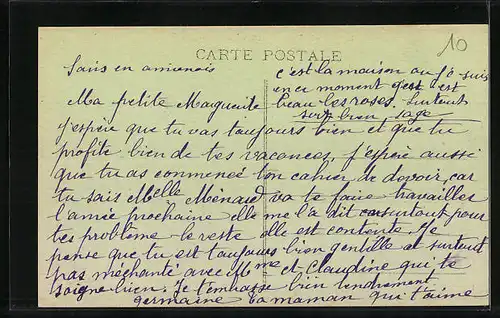 10
CARTE POSTALE
c'est la maison ou je suis
en ce moment c'est
beau les roses. surtout
soit bien sage
Ma petite Marguerite
j'espère que tu vas toujours bien et que tu
profite bien de tes vacances, j'espère aussi
que tu as commencé ton cahier de devoir, car
tu sais Melle Ménard va te faire travailler
l'année prochaine elle me l'a dit surtout pour
tes problème le reste elle est contente. Je
pense que tu est toujours bien gentille et surtout
pas méchante avec Mme et Claudine qui te
soigne bien. Je t'embrasse bien tendrement
germaine ta maman qui t'aime